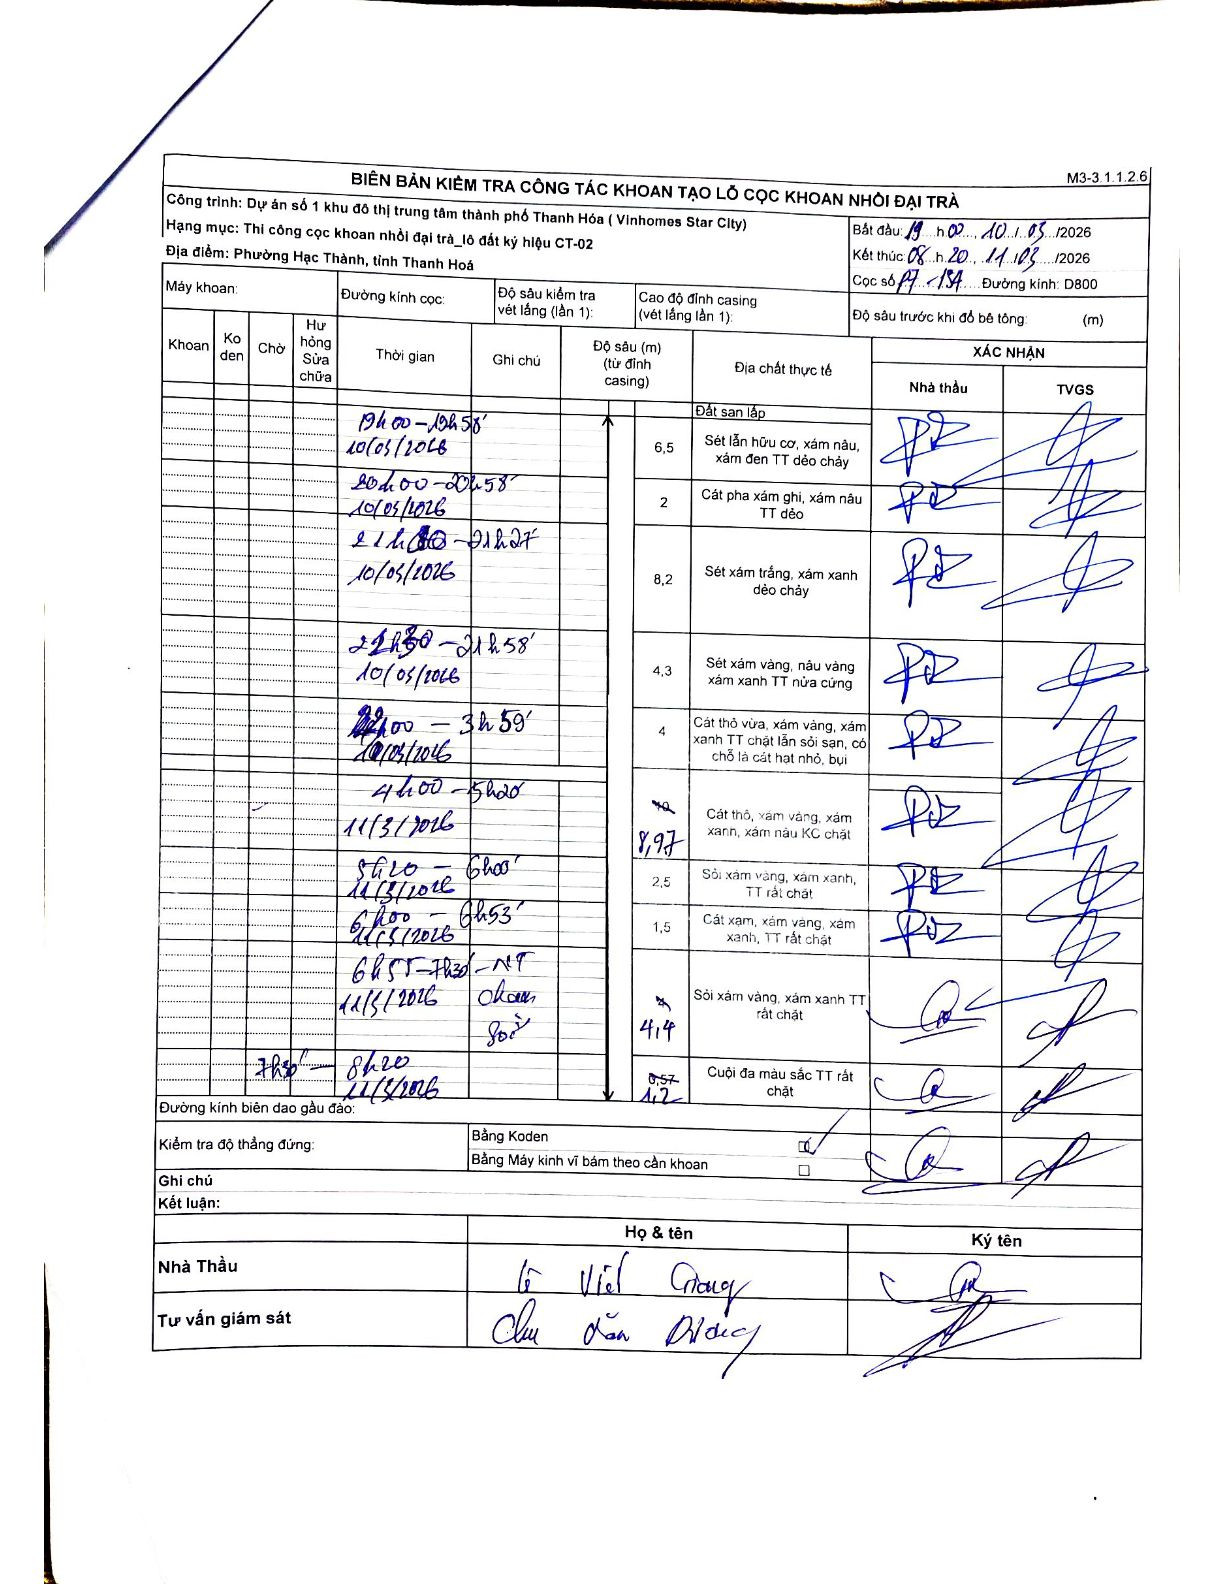 M3-3.1.1.2.6
BIÊN BẢN KIỂM TRA CÔNG TÁC KHOAN TẠO LỖ CỌC KHOAN NHỒI ĐẠI TRÀ
Công trình: Dự án số 1 khu đô thị trung tâm thành phố Thanh Hóa ( Vinhomes Star City)
Hạng mục: Thi công cọc khoan nhồi đại trà_lô đất ký hiệu CT-02
Địa điểm: Phường Hạc Thành, tỉnh Thanh Hoá
Bắt đầu: 19 h 00, 10/03/2026
Kết thúc: 08 h 20, 11/03/2026
Cọc số P7-Đường kính: D800
Máy khoan:
Đường kính cọc:
Độ sâu kiểm tra vét lắng (lần 1):
Cao độ đỉnh casing (vét lắng lần 1):
Độ sâu trước khi đổ bê tông: (m)
Khoan
Ko den
Chờ
Hư hỏng Sửa chữa
Thời gian
Ghi chú
Độ sâu (m) (từ đỉnh casing)
Địa chất thực tế
XÁC NHẬN
Nhà thầu
TVGS
Đất san lấp
19h00-19h58'
10/03/2026
6,5
Sét lẫn hữu cơ, xám nâu,
xám đen TT dẻo chảy
20h00-20h58'
10/03/2026
2
Cát pha xám ghi, xám nâu
TT dẻo
-21h27
10/03/2026
8,2
Sét xám trắng, xám xanh
dẻo chảy
-21h58'
10/03/2026
4,3
Sét xám vàng, nâu vàng
xám xanh TT nửa cứng
- 3h59'
10/03/2026
4
Cát thô vừa, xám vàng, xám
xanh TT chặt lẫn sỏi sạn, có
chỗ là cát hạt nhỏ, bụi
4h00-5h20
11/3/2026
10
8,97
Cát thô, xám vàng, xám
xanh, xám nâu KC chặt
5h20 - 6h00'
11/3/2026
2,5
Sỏi xám vàng, xám xanh,
TT rất chặt
6h00 - 6h53'
11/3/2026
1,5
Cát xám, xám vàng, xám
xanh, TT rất chặt
6h55-7h30'-NT
11/3/2026
4,4
Sỏi xám vàng, xám xanh TT
rất chặt
7h30' - 8h20
11/3/2026
0,57
1,2
Cuội đa màu sắc TT rất
chặt
Đường kính biên dao gầu đào:
Kiểm tra độ thẳng đứng:
Bằng Koden
Bằng Máy kinh vĩ bám theo cần khoan
Ghi chú
Kết luận:
Họ & tên
Ký tên
Nhà Thầu
Lê Viết Giang
Tư vấn giám sát
Chu Văn